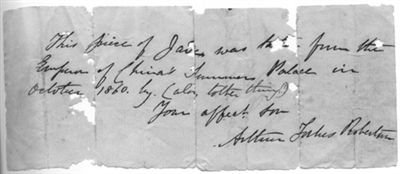 This piece of Jade was from the
Emperor of China's Summer Palace in
October 1860. by (also other things)
Your affect son
Arthur Forbes Robertson